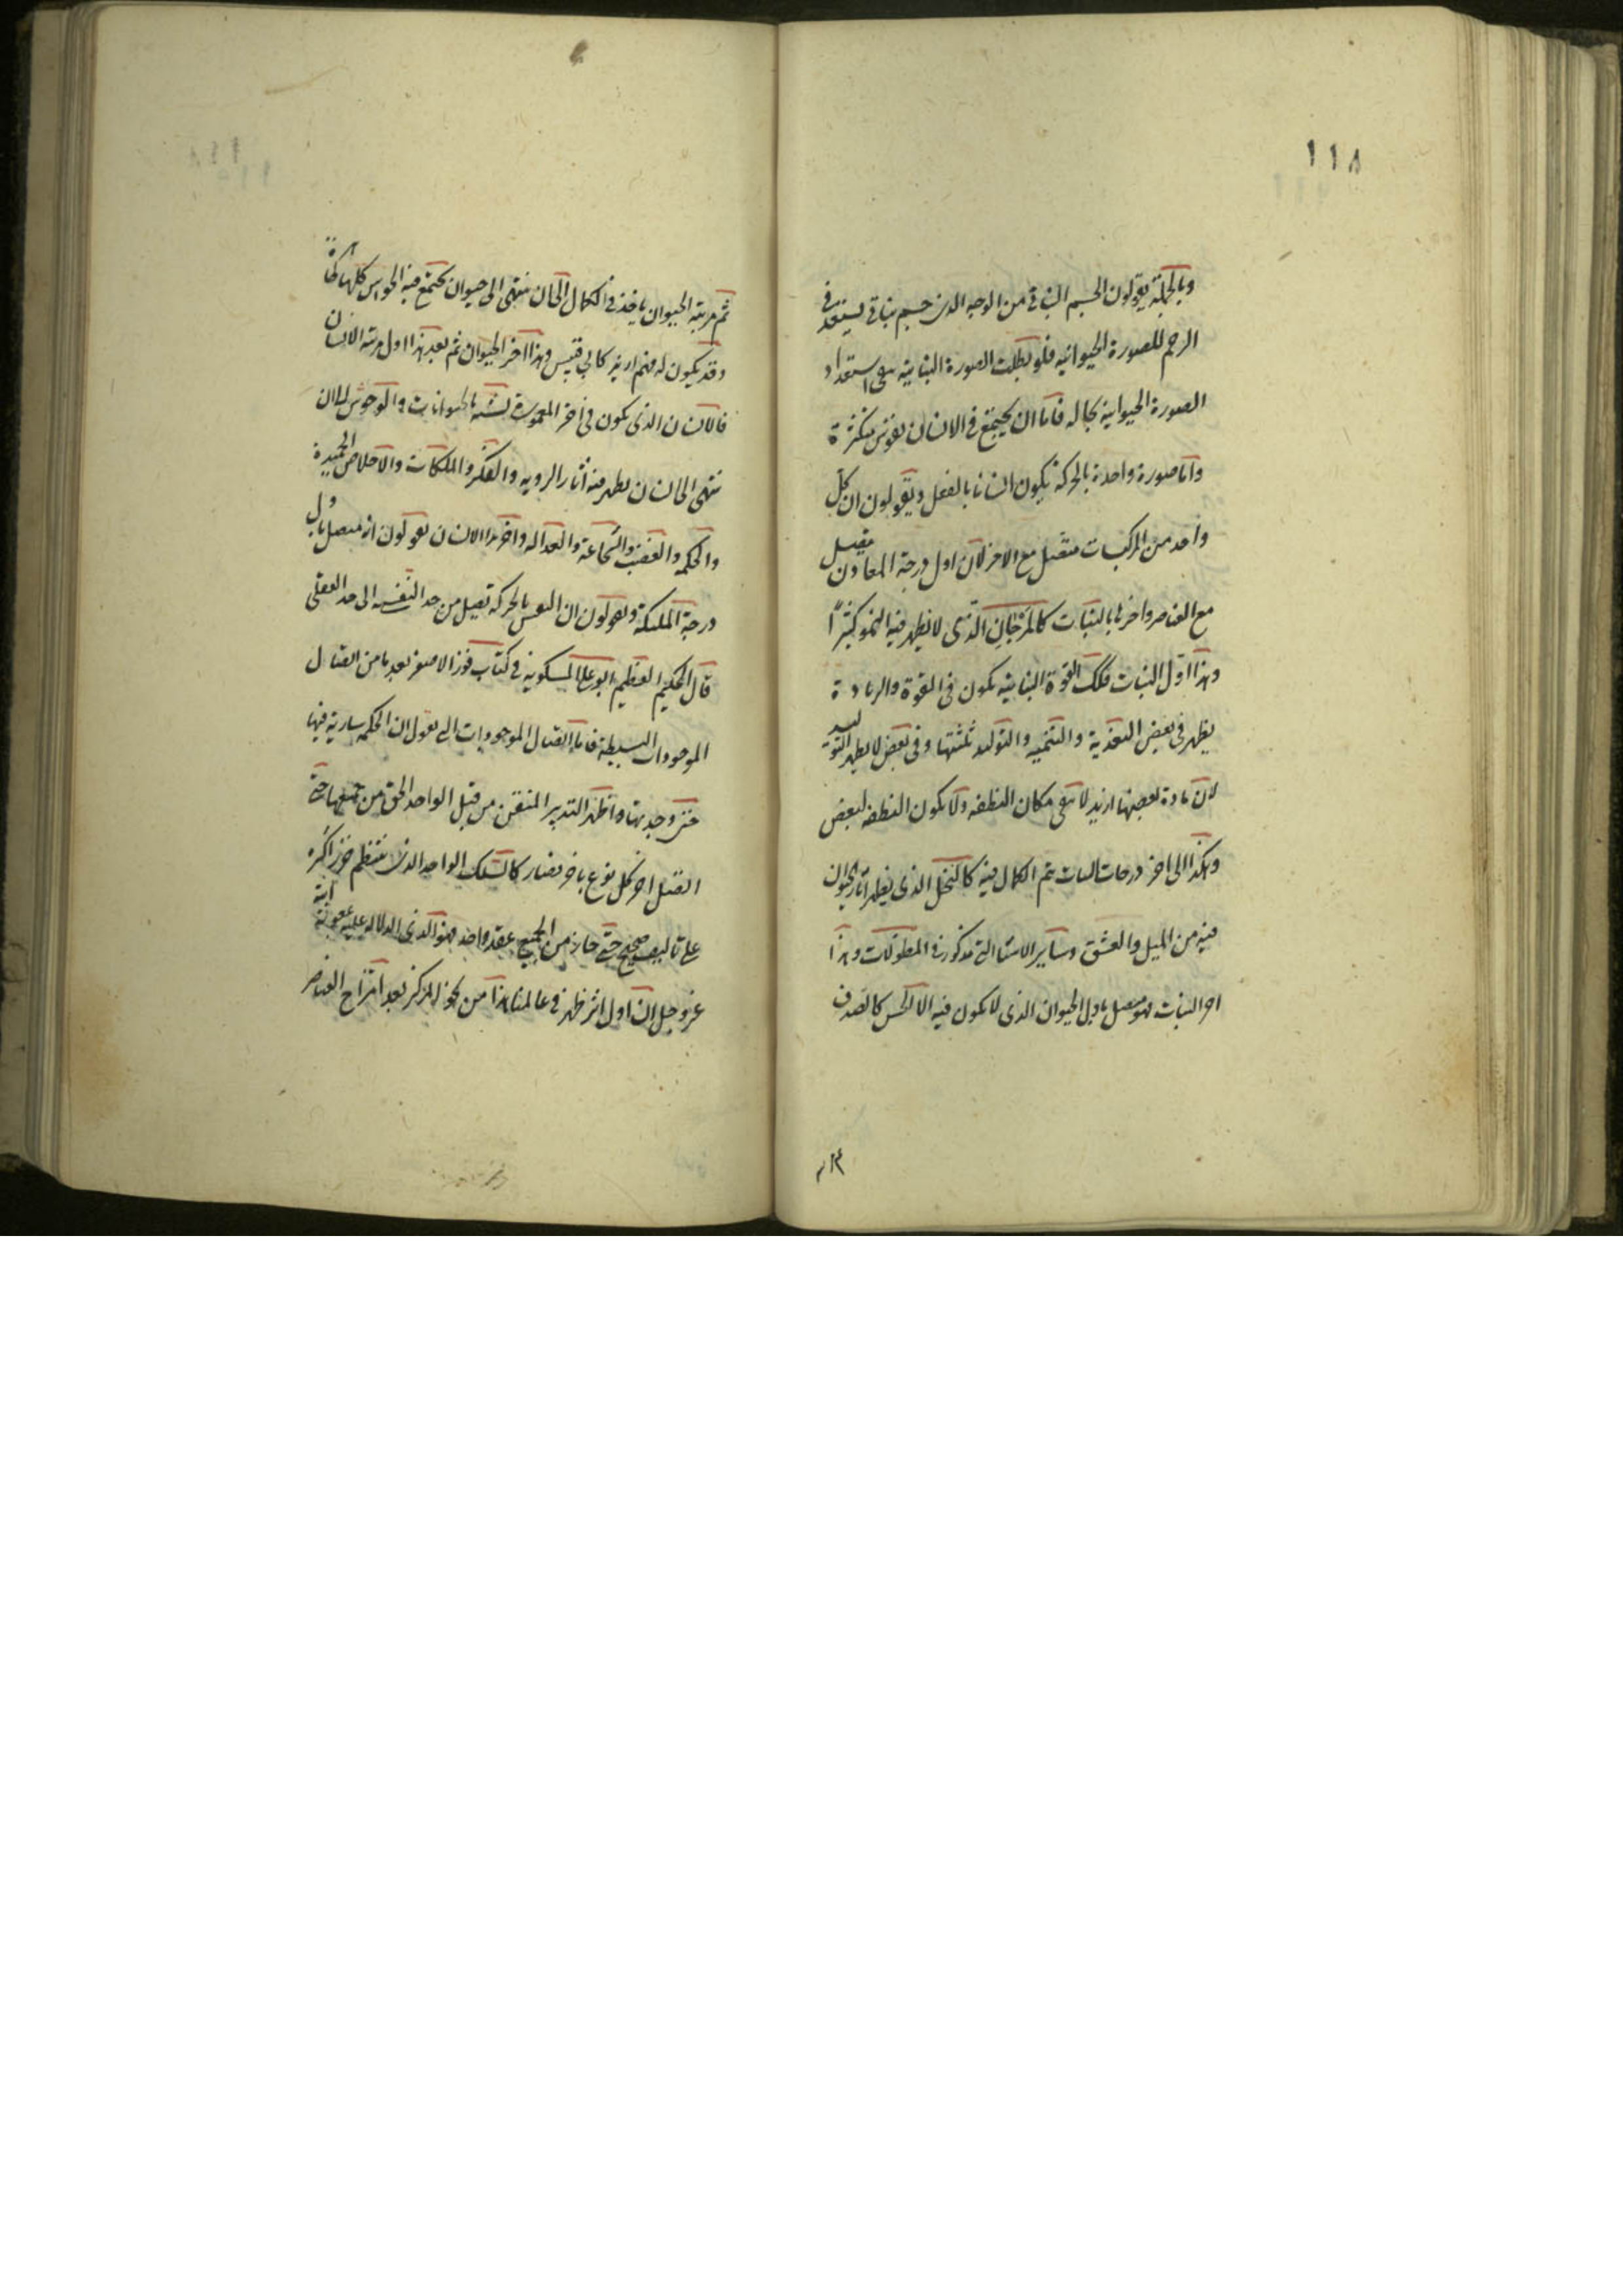 ١١٨
وبالجملة يقولون الجسم النباتي من الوجه الذي جسم نباتي يستعد في
الرحم للصورة الحيوانيه فلو بطلت الصورة النباتية بقي استعداد
الصورة الحيوانية بحاله فاما ان يجتمع في الانسان نفوس متكثرة
واما صورة واحدة بالحركة يكون انسانا بالفعل ويقولون ان كل
واحد من المركبات متصل مع الاخر لان اول درجة المعادن متصل
مع العناصر واخرها بالنبات كالمرجان الذي لا يظهر فيه النمو كثيرًا
وهذا اول النبات فلك القوة النباتية يكون في القوة والزيادة
يظهر في بعض التغذية والتنميه والتوليد ثلثتها وفي بعض لا يظهر التوليد
لان مادة بعضها ازيد لا تبقى مكان النطفه ولا يكون النطفه لبعض
وهكذا الى اخر درجات النبات يتم الكمال فيه كالنخل الذي يظهر آثار الحيوان
فيه من الميل والعشق وساير الاشيا التي مذكورة في المطولات وهذا
اخر النبات فهو متصل باول الحيوان الذي لا يكون فيه الا الحس كالصدف
ثم مرتبة الحيوان ياخذ في الكمال الى ان ينتهى الى حيوان يجتمع فيه الحواس كلها ظاهرة
وقد يكون له فهم ازيد كابي قبيس وهذا آخر الحيوان ثم بعد هذا اول مرتبة الانسان
فالانسان الذي يكون في آخر المعمورة لشبه بالحيوانات والوحوش الى ان
ينتهى الى انسان يظهر منه آثار الرويه والفكر والملكات والاخلاق الحميدة
والحكمه والغضب والشجاعة والعداله واخر هذا الانسان يقولون انه متصل باول
درجة الملكية ويقولون ان النفس بالحركة تصل من حد النفسية الى حد العقلى
قال الحكيم العظيم ابو علي المسكويه في كتاب فوز الاصغر بعدما من اتصال
الموجودات البسيطة فاما اتصال الموجودات التي نقول ان الحكمه سارية فيها
حتى وجدتها واظهر التدبير المتقن من قبل الواحد الحق من جميعها حتى
اتصل اخر كل نوع باخر فصار كالسلك الواحد الذي ينتظم خرزا كثيره
على تاليف صحيح حتى جاء من الجميع عقد واحد فهو الذي الدلالة عليه بمعونة الله
عز وجل ان اول اثر ظهر في عالمنا هذا من نحو المركز بعد امتزاج العناصر